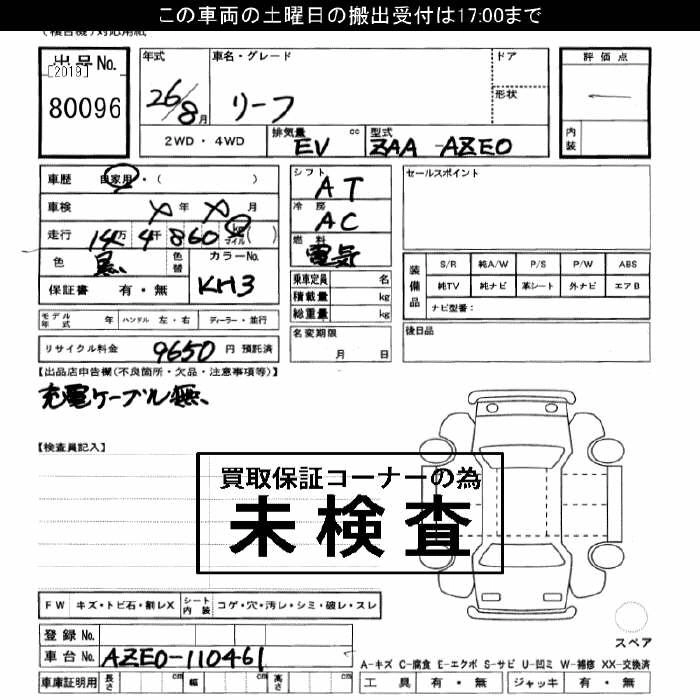 この車両の土曜日の搬出受付は17:00まで
(複合機)対応用紙
出品No.
[2019]
80096
年式
26/8月
車名・グレード
リーフ
ドア
形状
評価点
内装
2WD・4WD
排気量 cc
EV
型式
ZAA-AZE0
車歴 自家用・( )
車検 年 月
走行 14万4千860 kg マイル ( )
色 黒 色替
カラーNo.
KH3
保証書 有・無
シフト
AT
冷房
AC
燃料
電気
乗車定員 名
積載量 kg
総重量 kg
セールスポイント
装備品
S/R 純A/W P/S P/W ABS
純TV 純ナビ 革シート 外ナビ エアB
ナビ型番:
モデル年式 年 ハンドル 左・右 ディーラー・並行
名変期限
月 日
後日品
リサイクル料金 9650 円 預託済
【出品店申告欄(不良箇所・欠品・注意事項等)】
充電ケーブル無、
【検査員記入】
買取保証コーナーの為
未検査
FW キズ・トビ石・割レX シート内装 コゲ・穴・汚レ・シミ・破レ・スレ
登録No.
車台No. AZE0-110461
車庫証明用 長さ cm 幅 cm 高さ cm
スペア
A-キズ C-腐食 E-エクボ S-サビ U-凹ミ W-補修 XX-交換済
工具 有・無 ジャッキ 有・無